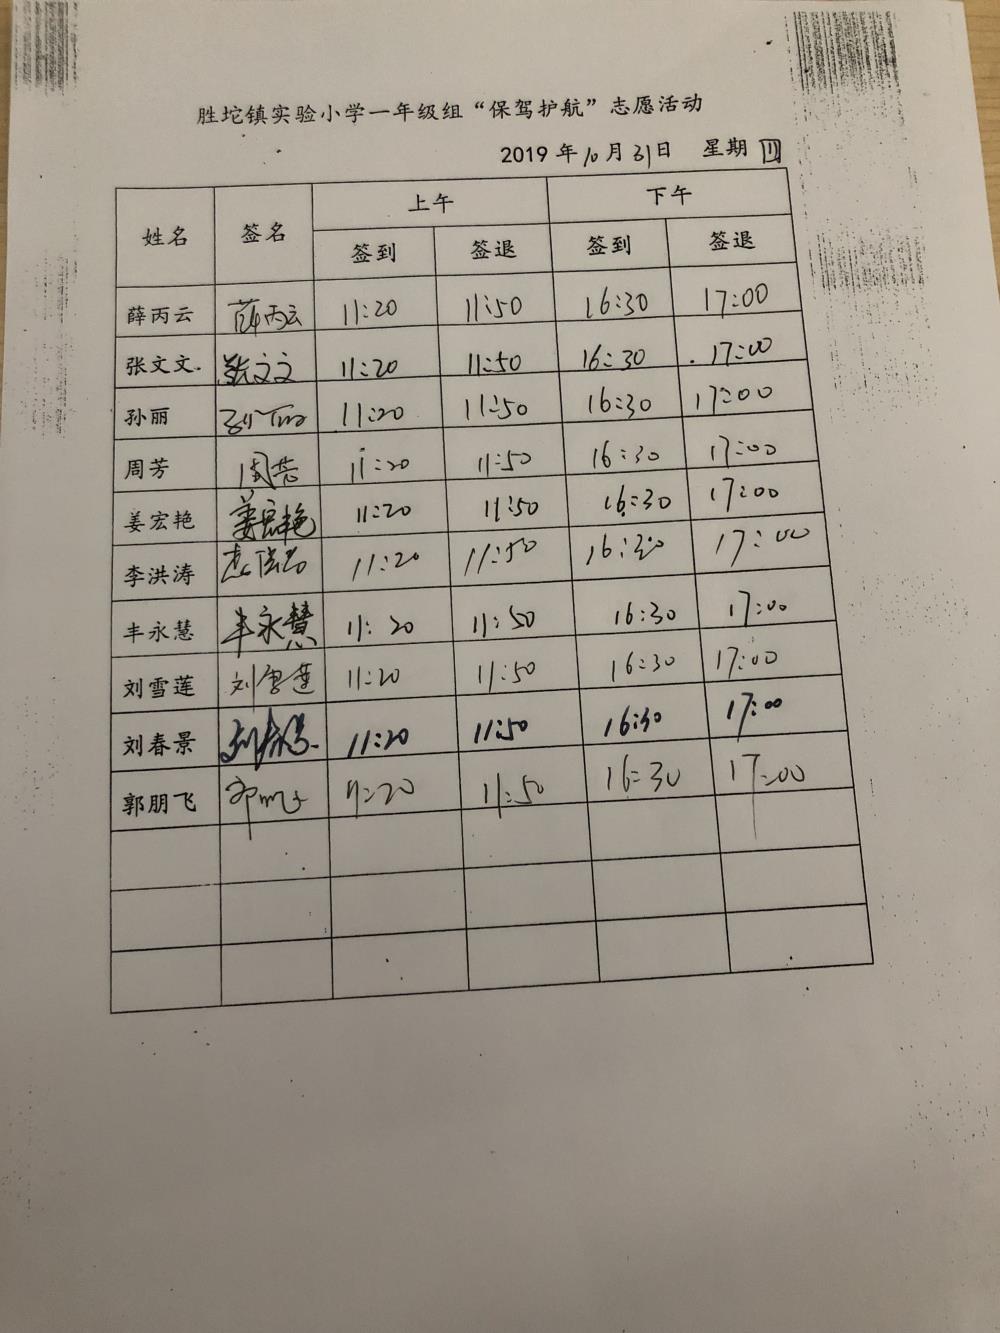 胜坨镇实验小学一年级组“保驾护航”志愿活动
2019 年 10 月 31 日 星期 四
姓名 签名 上午 下午
签到 签退 签到 签退
薛丙云 薛丙云 11:20 11:50 16:30 17:00
张文文. 张文文 11:20 11:50 16:30 17:00
孙丽 孙丽 11:20 11:50 16:30 17:00
周芳 周芳 11:20 11:50 16:30 17:00
姜宏艳 姜宏艳 11:20 11:50 16:30 17:00
李洪涛 11:20 11:50 16:30 17:00
丰永慧 丰永慧 11:20 11:50 16:30 17:00
刘雪莲 刘雪莲 11:20 11:50 16:30 17:00
刘春景 刘春景 11:20 11:50 16:30 17:00
郭朋飞 11:20 11:50 16:30 17:00